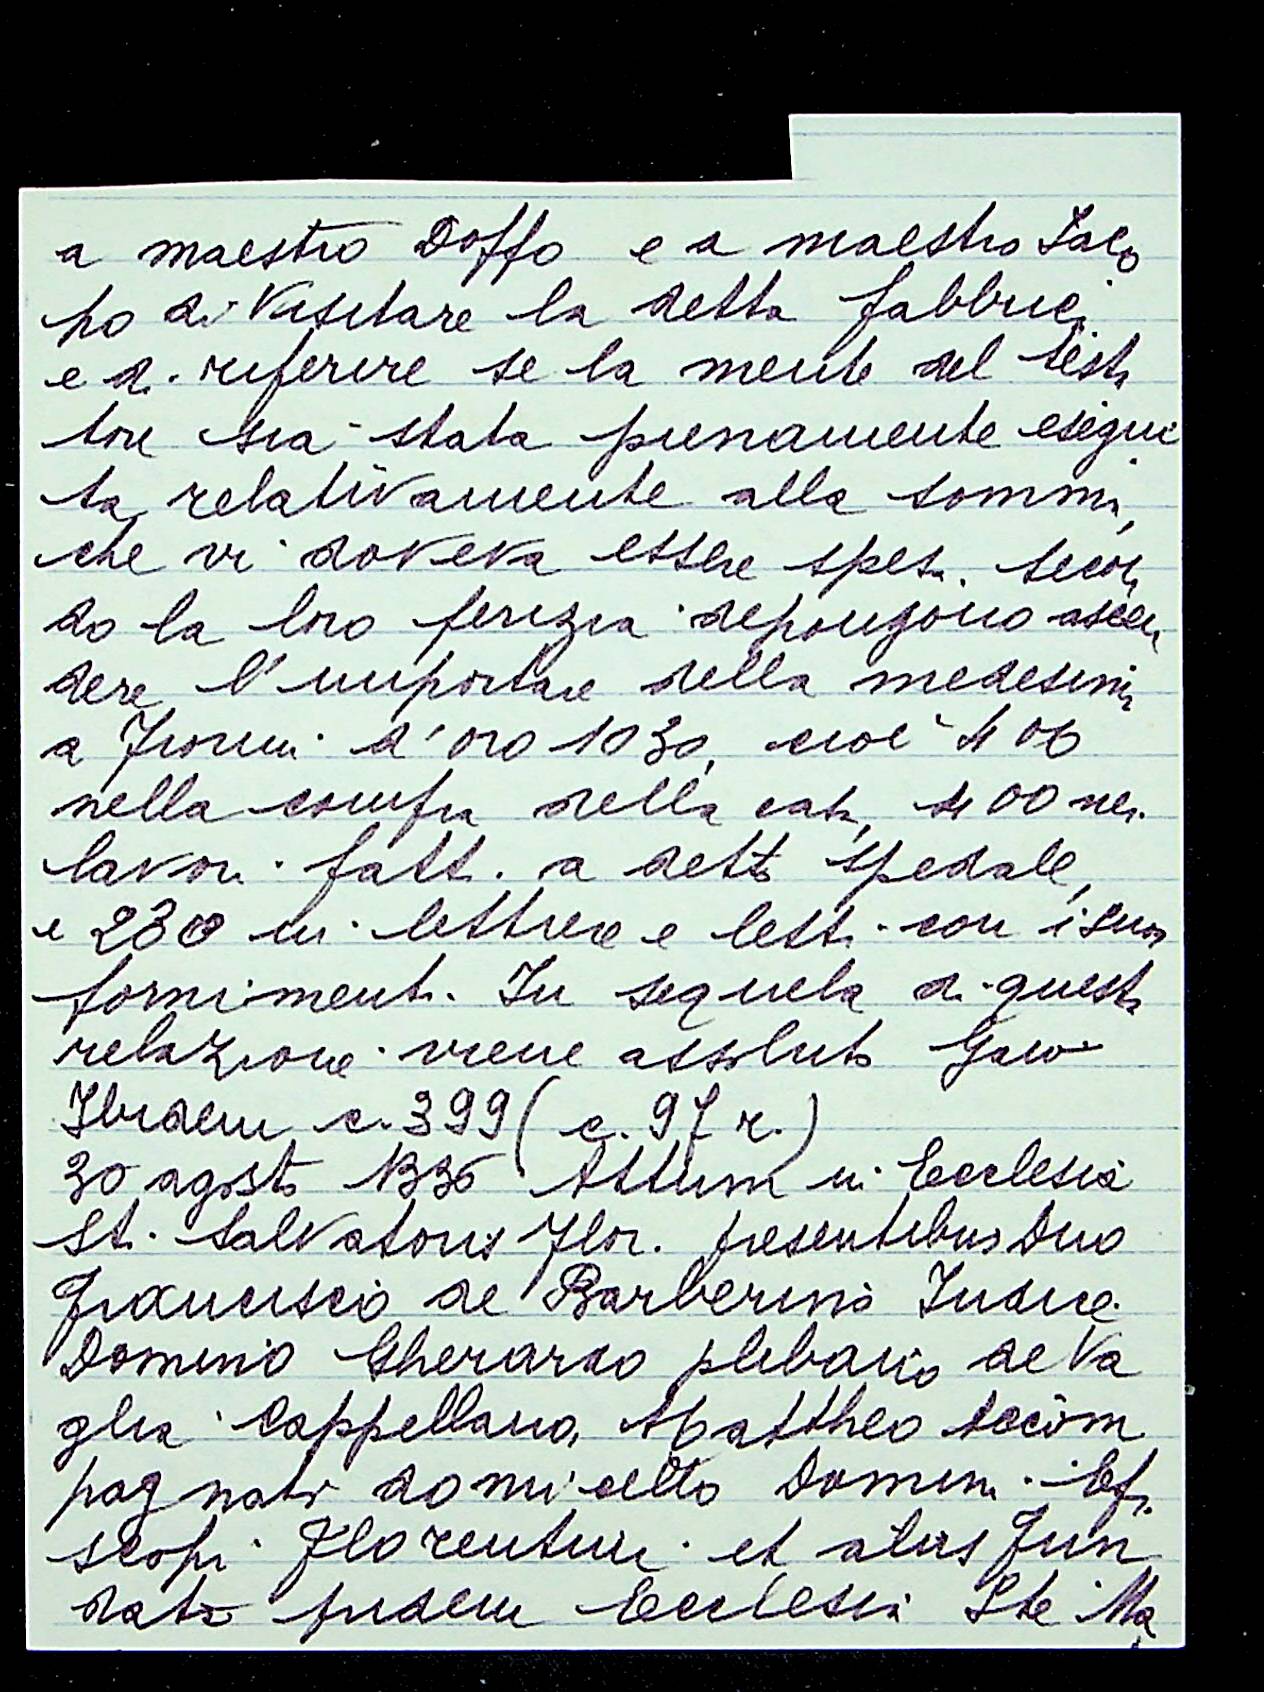 a maestro Doffo e a maestro Iaco
po di visitare la detta fabbrica
e di riferire se la mente del testa
tore sia stata pienamente esegui
ta, relativamente alla somma,
che vi doveva essere spesa. Secon
do la loro perizia depongono ascen
dere l'importare della medesima
a Fiorini d'oro 1030, cioè 400
nella compra della casa, 400 nei
lavori fatti a detto spedale,
e 230 in lettiere e letti con i suoi
fornimenti. In sequela di questa
relazione viene assoluto
Ibidem c. 399 (c. 97 r.)
30 agosto 1336 Actum in Ecclesia
St. Salvatoris Flor. presentibus Dno
Francisco de Barberino Iudice
Domino Gherardo plebano de Va
glia Cappellano, Mattheo
domicello Domini Epi
scopi Florentini et aliis Fun
data pridem Ecclesia Ste Ma